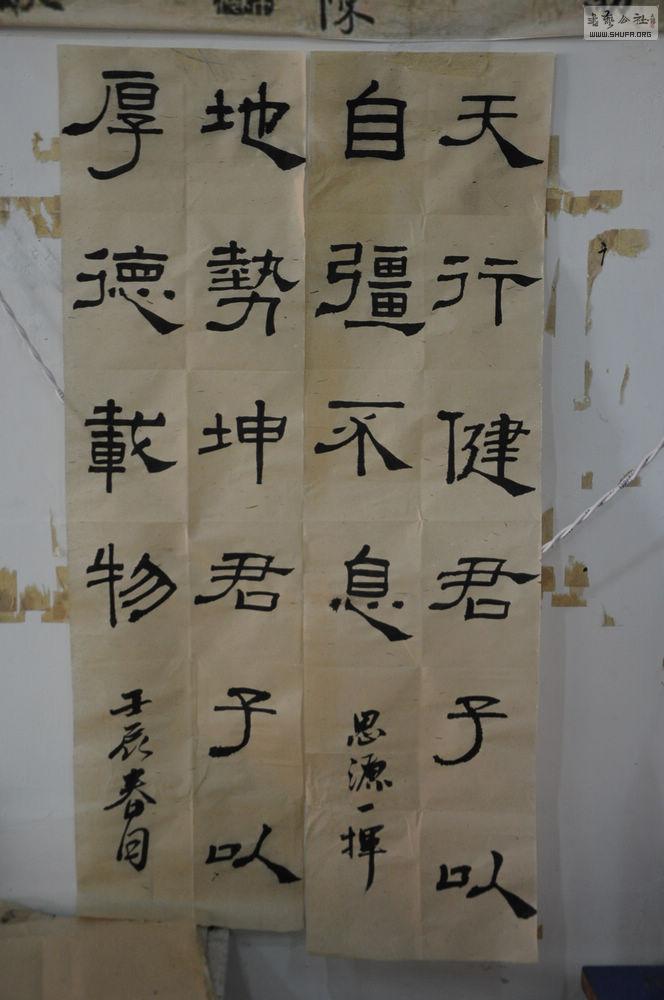 天行健君子以
自彊不息
思源一揮
地勢坤君子以
厚德載物
壬辰春月
陳
書藝公社
WWW.SHUFA.ORG